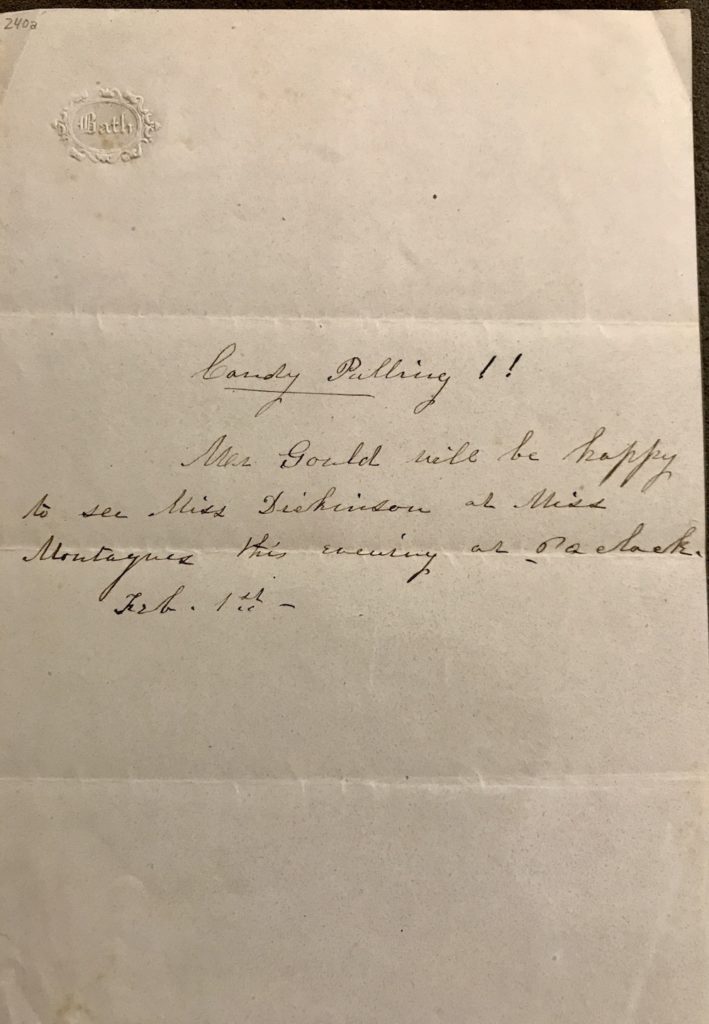 240a
Bath
Candy Pulling !!
Mr Gould will be happy
to see Miss Dickinson at Miss
Montagues this evening at 6 o clock.
Feb. 1st –